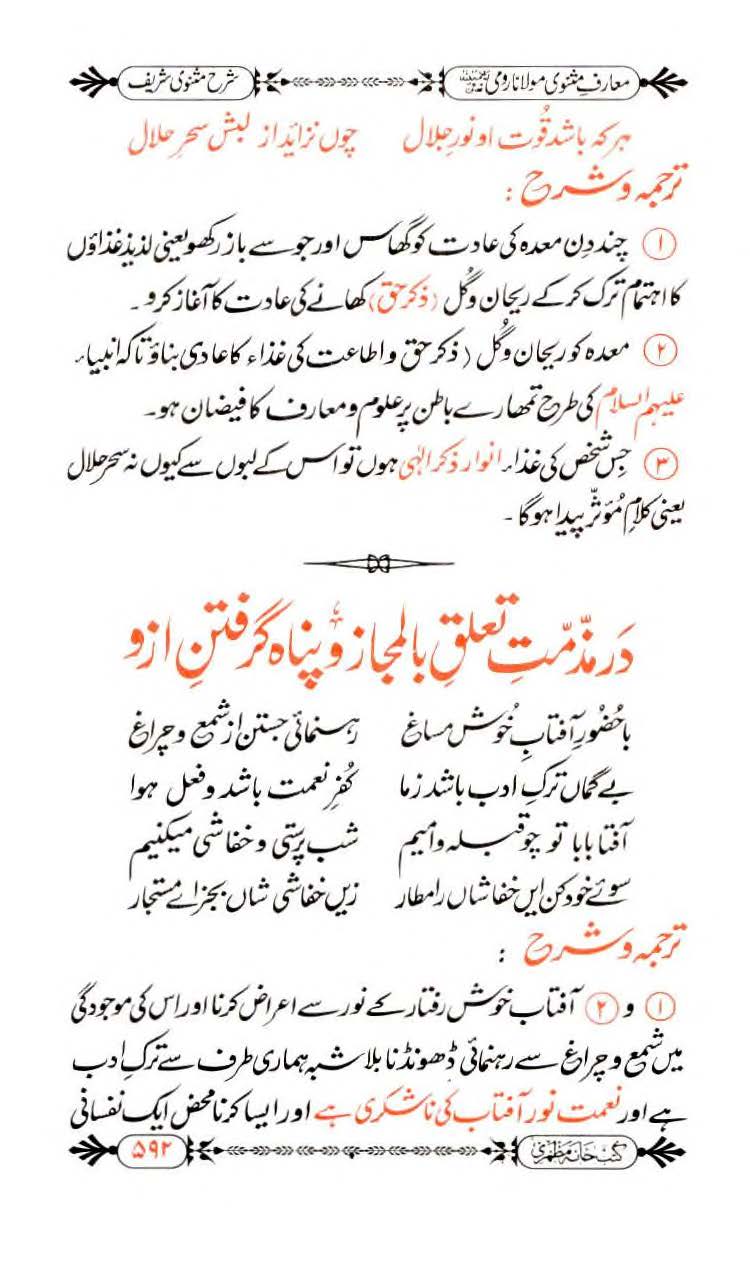 معارفِ مثنوی مولانا رومی
شرح مثنوی شریف
ہر کہ باشد قُوت او نورِ جلال    چوں نزاید از لبش سحرِ حلال
ترجمہ و شرح :
۱ چند دِن معدہ کی عادت کو گھاس اور جو سے باز رکھو یعنی لذیذ غذاؤں
کا اہتمام ترک کر کے ریحان و گُل (ذکر حق) کھانے کی عادت کا آغاز کرو ۔
۲ معدہ کو ریحان و گُل ( ذکر حق و اطاعت کی غذاء کا عادی بناؤ تاکہ انبیاء
علیہم السلام کی طرح تمھارے باطن پر علوم و معارف کا فیضان ہو ۔
۳ جِس شخص کی غذاء انوار ذکرِ الٰہی ہوں تو اس کے لبوں سے کیوں نہ سحرِ حلال
یعنی کلامِ مُؤثّر پیدا ہوگا ۔
دَر مذّمّتِ تعلقِ بالمجاز و پناہ گرفتنِ ازو
با حُضُورِ آفتابِ خُوش مساغ    رہنمائی جستن از شمع و چراغ
بے گماں ترکِ ادب باشد زما    کُفرِ نعمت باشد و فعل ہوا
آفتابا با تو چو قبلہ و امیم    شب پرستی و خفاشی میکنیم
سوئے خود کن ایں خفاشاں را مطار    زیں خفاشی شاں بجز اے مستجار
ترجمہ و شرح :
۱ و ۲ آفتاب خوش رفتار کے نور سے اعراض کرنا اور اس کی موجودگی
میں شمع و چراغ سے رہنمائی ڈھونڈنا بلا شبہ ہماری طرف سے ترکِ ادب
ہے اور نعمت نورِ آفتاب کی ناشکری ہے اور ایسا کرنا محض ایک نفسانی
کتب خانہ مظہری
۵۹۲